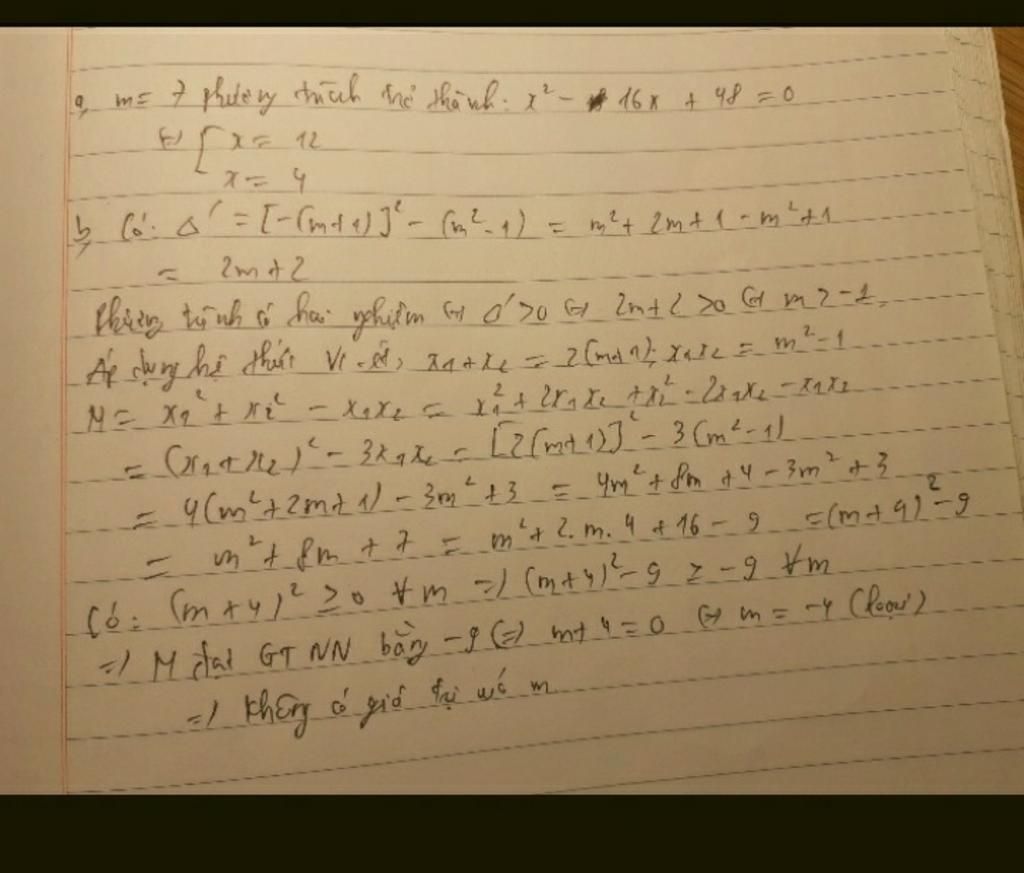 a, m = 7 phương trình trở thành: x² - 16x + 48 = 0
⇔ [ x = 12
x = 4
b, Có: Δ' = [-(m+1)]² - (m²-1) = m² + 2m + 1 - m² + 1
= 2m + 2
Phương trình có hai nghiệm ⇔ Δ' > 0 ⇔ 2m + 2 > 0 ⇔ m > -1.
Áp dụng hệ thức Vi-ét, x₁ + x₂ = 2(m+1); x₁x₂ = m² - 1
M = x₁² + x₂² - x₁x₂ = x₁² + 2x₁x₂ + x₂² - 2x₁x₂ - x₁x₂
= (x₁ + x₂)² - 3x₁x₂ = [2(m+1)]² - 3(m²-1)
= 4(m² + 2m + 1) - 3m² + 3 = 4m² + 8m + 4 - 3m² + 3
= m² + 8m + 7 = m² + 2.m.4 + 16 - 9 = (m+4)² - 9
Có: (m+4)² ≥ 0 ∀m ⇒ (m+4)² - 9 ≥ -9 ∀m
⇒ M đạt GTNN bằng -9 ⇔ m + 4 = 0 ⇔ m = -4 (loại)
⇒ Không có giá trị m